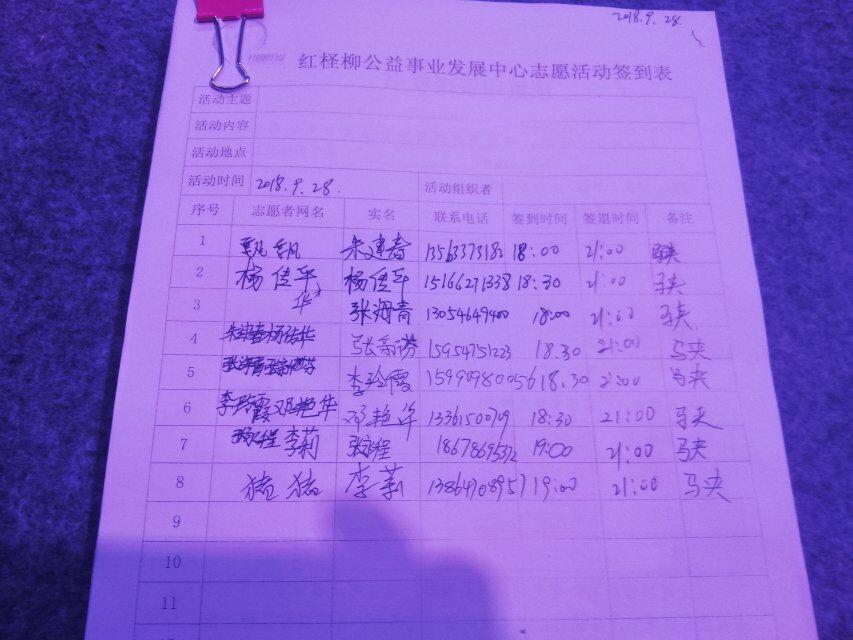 2018.9.28.
红柽柳公益事业发展中心志愿活动签到表
活动主题
活动内容
活动地点
活动时间 2018.9.28. 活动组织者
序号 志愿者网名 实名 联系电话 签到时间 签退时间 备注
1 飘飘 朱建春 13563373182 18:00 21:00 马夹
2 杨佳华 杨佳华 15166271338 18:30 21:00 马夹
华
3 张海青 13054649400 18:00 21:00 马夹
4 15954751223 18.30 21:00 马夹
5 李玲霞 15990980056 18.30 21:00 马夹
6 李玲霞 邓艳华 邓艳华 18:30 21:00 马夹
7 李莉 张程 19:00 21:00 马夹
8 猪猪 李莉 13864708957 19:00 21:00 马夹
9
10
11